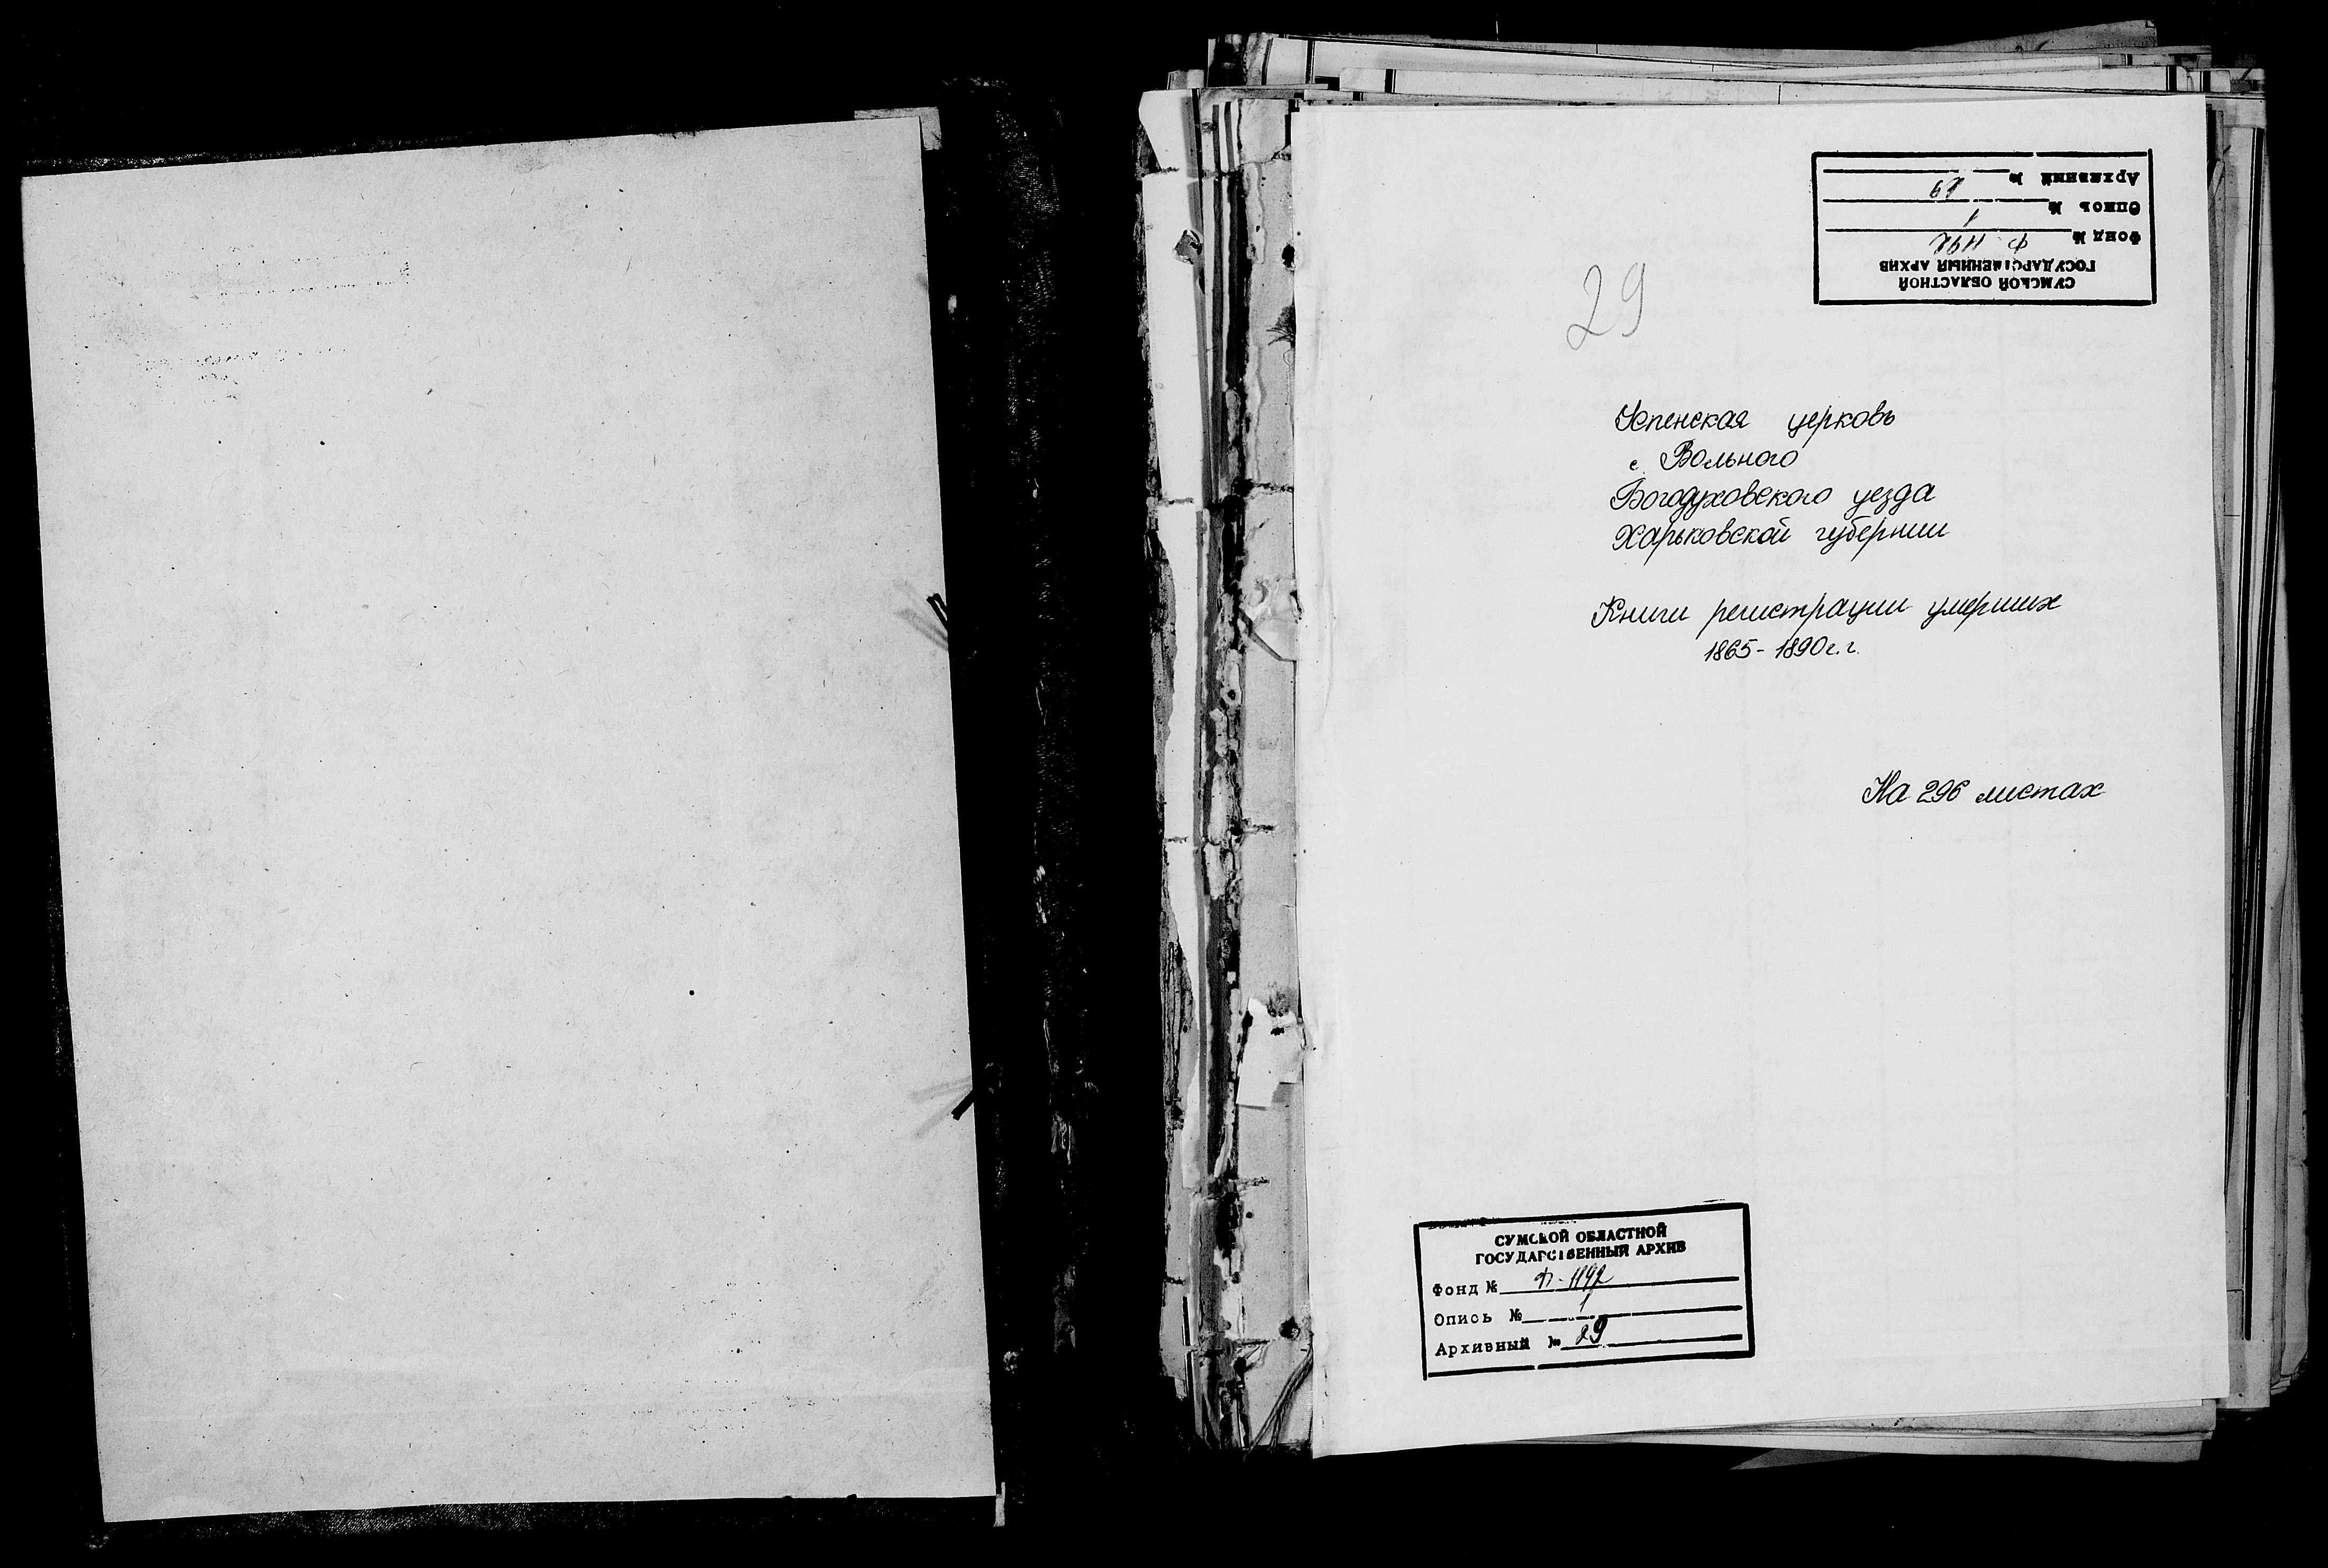 СУМСКОЙ ОБЛАСТНОЙ
ГОСУДАРСТВЕННЫЙ АРХИВ
Фонд № Ф-1192
Опись № 1
Архивный № 29
29
Успенская церковь
с. Вольного
Богодуховского уезда
Харьковской губернии
Книги регистрации умерших
1865-1890 г. г.
На 296 листах
СУМСКОЙ ОБЛАСТНОЙ
ГОСУДАРСТВЕННЫЙ АРХИВ
Фонд № Ф-1192
Опись № 1
Архивный № 29